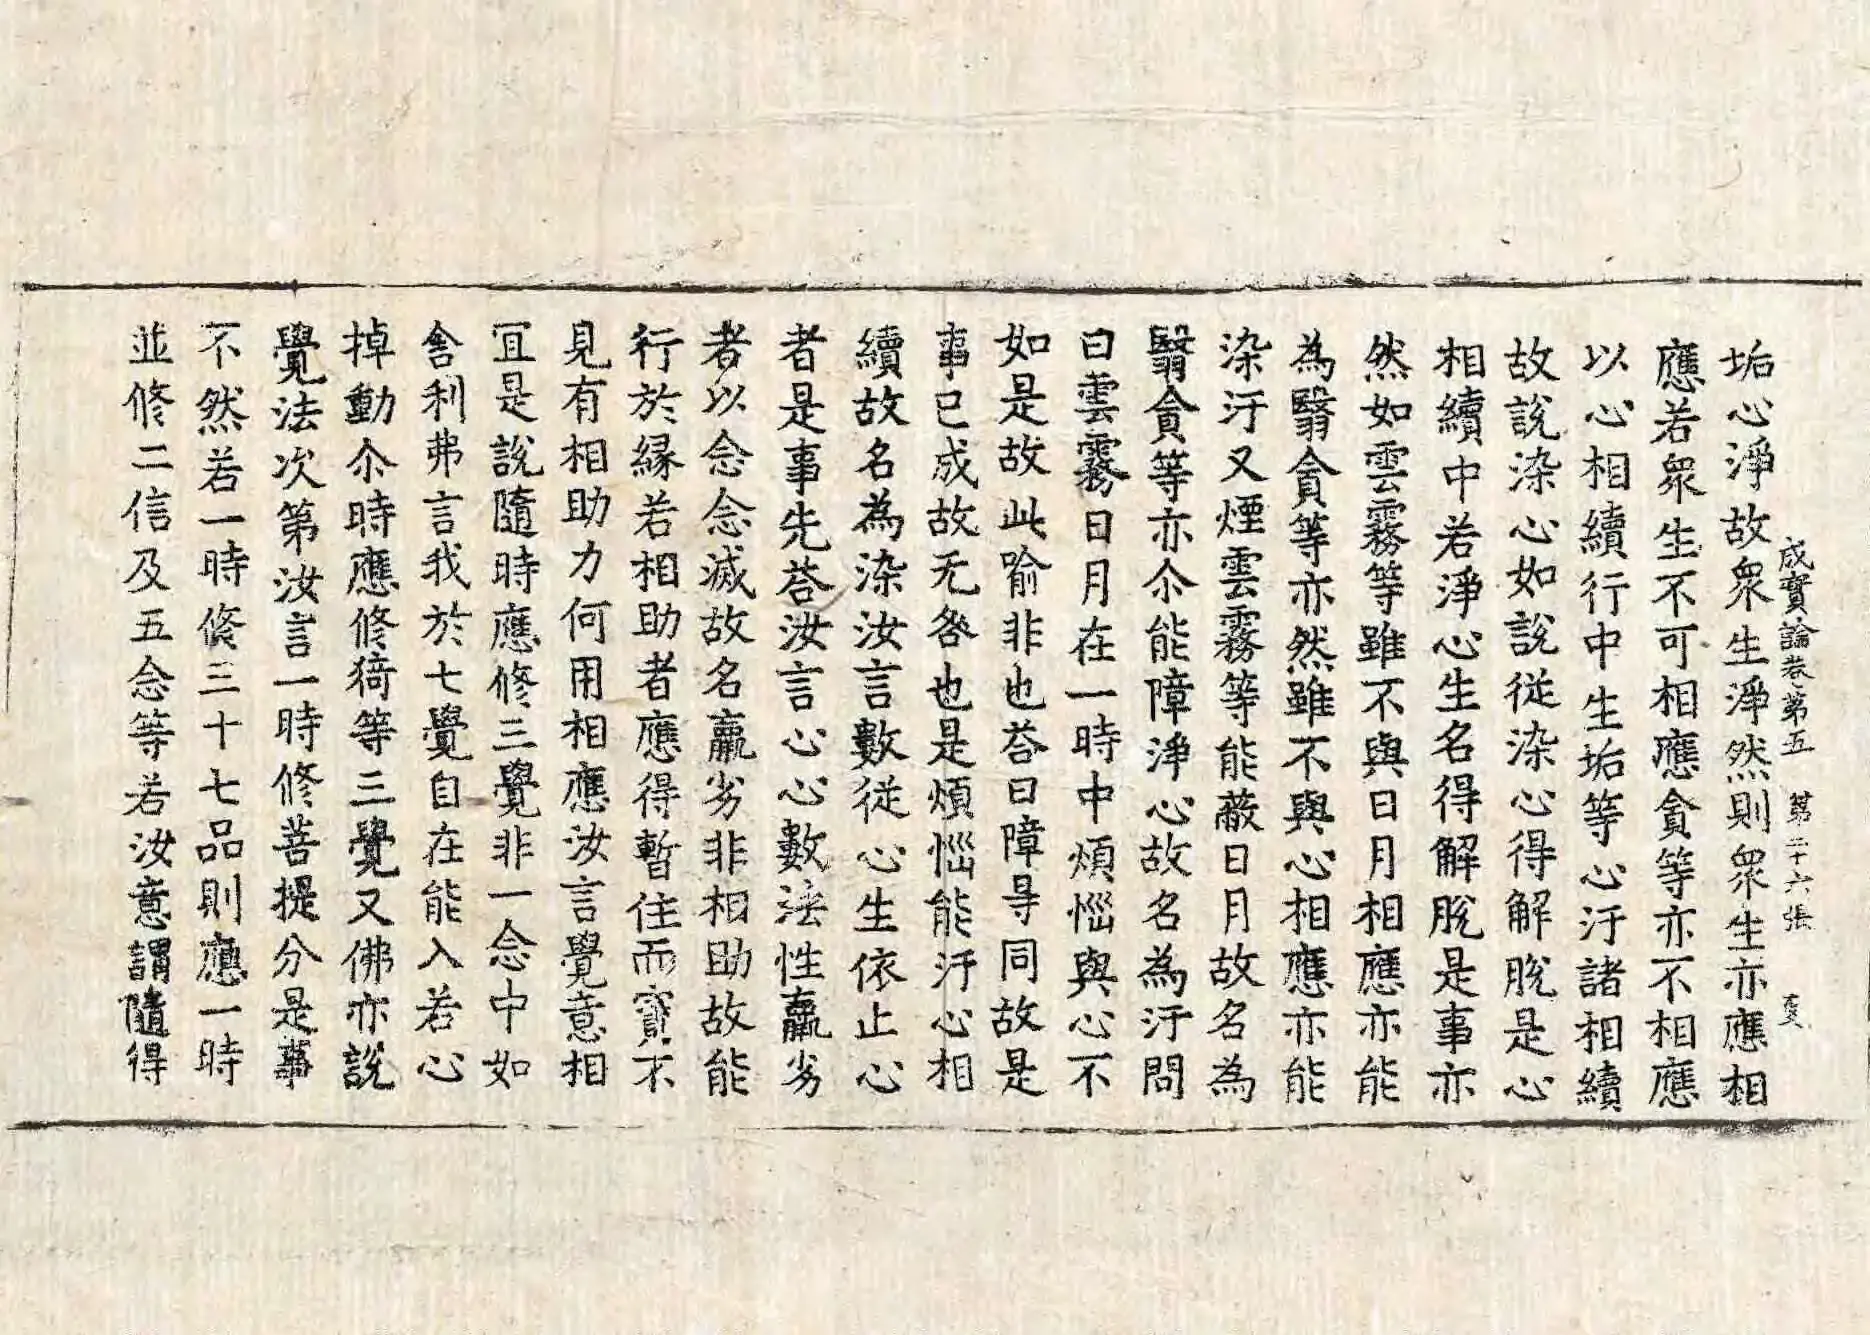 成實論卷第五　第二十六張
垢心淨故衆生淨然則衆生亦應相
應若衆生不可相應貪等亦不相應
以心相續行中生垢等心汙諸相續
故說染心如說從染心得解脫是心
相續中若淨心生名得解脫是事亦
然如雲霧等雖不與日月相應亦能
為翳貪等亦然雖不與心相應亦能
染汙又煙雲霧等能蔽日月故名為
翳貪等亦尒能障淨心故名為汙問
曰雲霧日月在一時中煩惱與心不
如是故此喻非也荅曰障㝵同故是
事已成故无咎也是煩惱能汙心相
續故名為染汝言數從心生依止心
者是事先荅汝言心心數法性羸劣
者以念念滅故名羸劣非相助故能
行於緣若相助者應得暫住而實不
見有相助力何用相應汝言覺意相
冝是說隨時應修三覺非一念中如
舍利弗言我於七覺自在能入若心
掉動尒時應修猗等三覺又佛亦說
覺法次第汝言一時修菩提分是事
不然若一時修三十七品則應一時
並修二信及五念等若汝意謂隨得